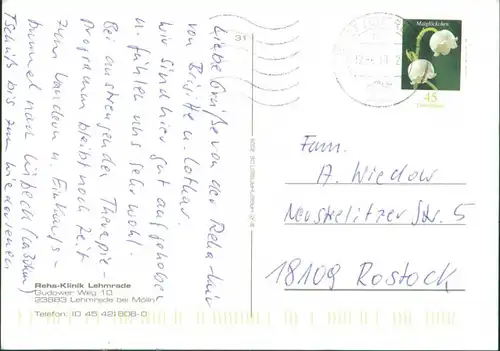 Liebe Grüße von der Reha-Kur
von Brigitte u. Lothar.
Wir sind hier gut aufgehoben
u. fühlen uns sehr wohl.
Bei anstrengender Therapie-
programm bleibt noch Zeit
zum Wandern u. Einkaufs-
bummel nach Lübeck
Tschüß bis zum Wiedersehen
Reha-Klinik Lehmrade
Gudower Weg 10
23883 Lehmrade bei Mölln
Telefon: (0 45 42) 808-0
31
Maiglöckchen
45
Deutschland
Fam.
A. Wiedow
Neustrelitzer Str. 5
18109 Rostock